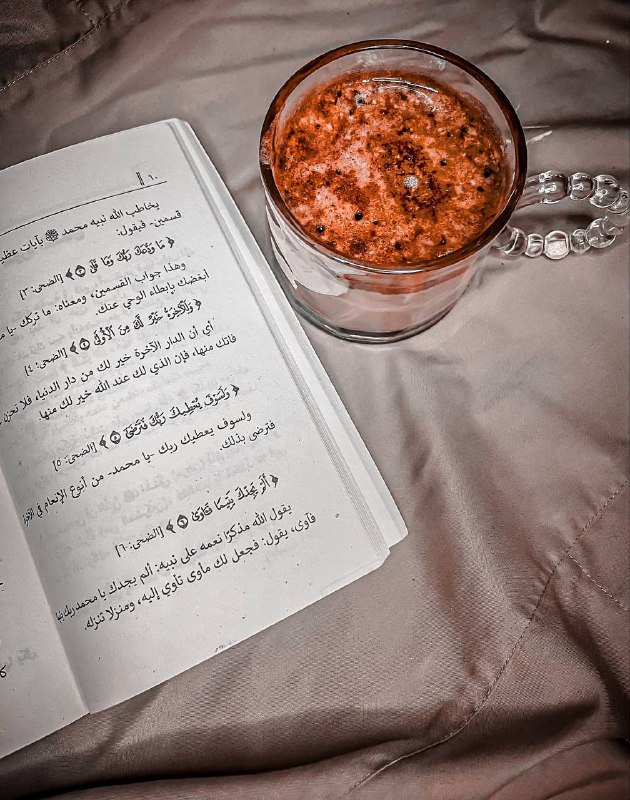 ٦٠
يخاطب الله نبيه محمد ﷺ بآيات عظي
قسمين- فيقول:
﴿ مَا وَدَّعَكَ رَبُّكَ وَمَا قَلَىٰ ﴿٣﴾ ﴾ [الضحى: ٣]
وهذا جواب القسمين، ومعناه: ما تركك -يا م
أبغضك بإبطاء الوحي عنك.
﴿ وَلَلْآخِرَةُ خَيْرٌ لَّكَ مِنَ الْأُولَىٰ ﴿٤﴾ ﴾ [الضحى: ٤]
أي أن الدار الآخرة خير لك من دار الدنيا، فلا تحزن
فاتك منها، فإن الذي لك عند الله خير لك منها.
﴿ وَلَسَوْفَ يُعْطِيكَ رَبُّكَ فَتَرْضَىٰ ﴿٥﴾ ﴾ [الضحى: ٥]
ولسوف يعطيك ربك -يا محمد- من أنواع الإنعام في
فترضى بذلك.
﴿ أَلَمْ يَجِدْكَ يَتِيمًا فَآوَىٰ ﴿٦﴾ ﴾ [الضحى: ٦]
يقول الله مذكرًا نعمه على نبيه: ألم يجدك يا محمد ربك
فآوى، يقول: فجعل لك مأوى تأوي إليه، ومنزلا تنزله.